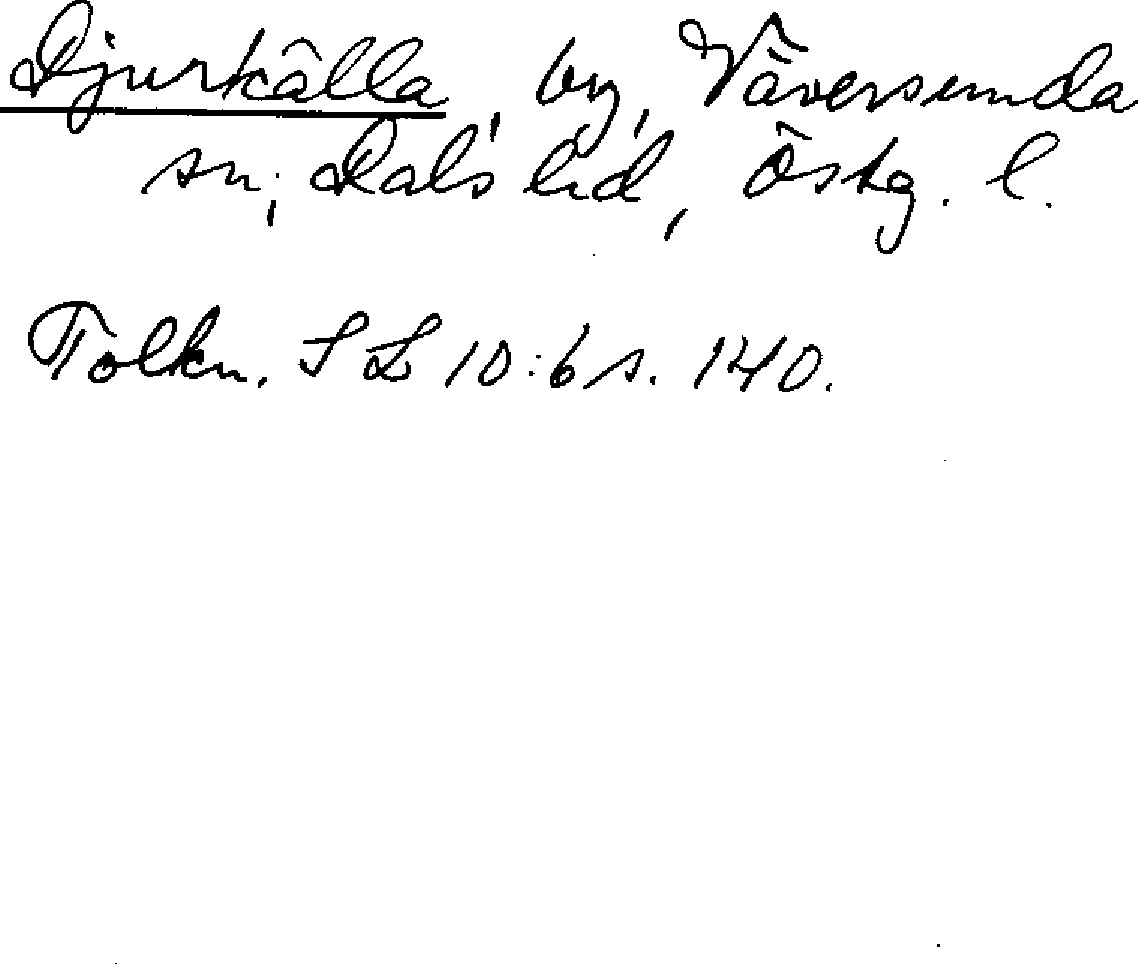 Djurkälla, by, Väversunda
sn, Dals hd, Östg. l.
Tolkn. SL 10:6 s. 140.